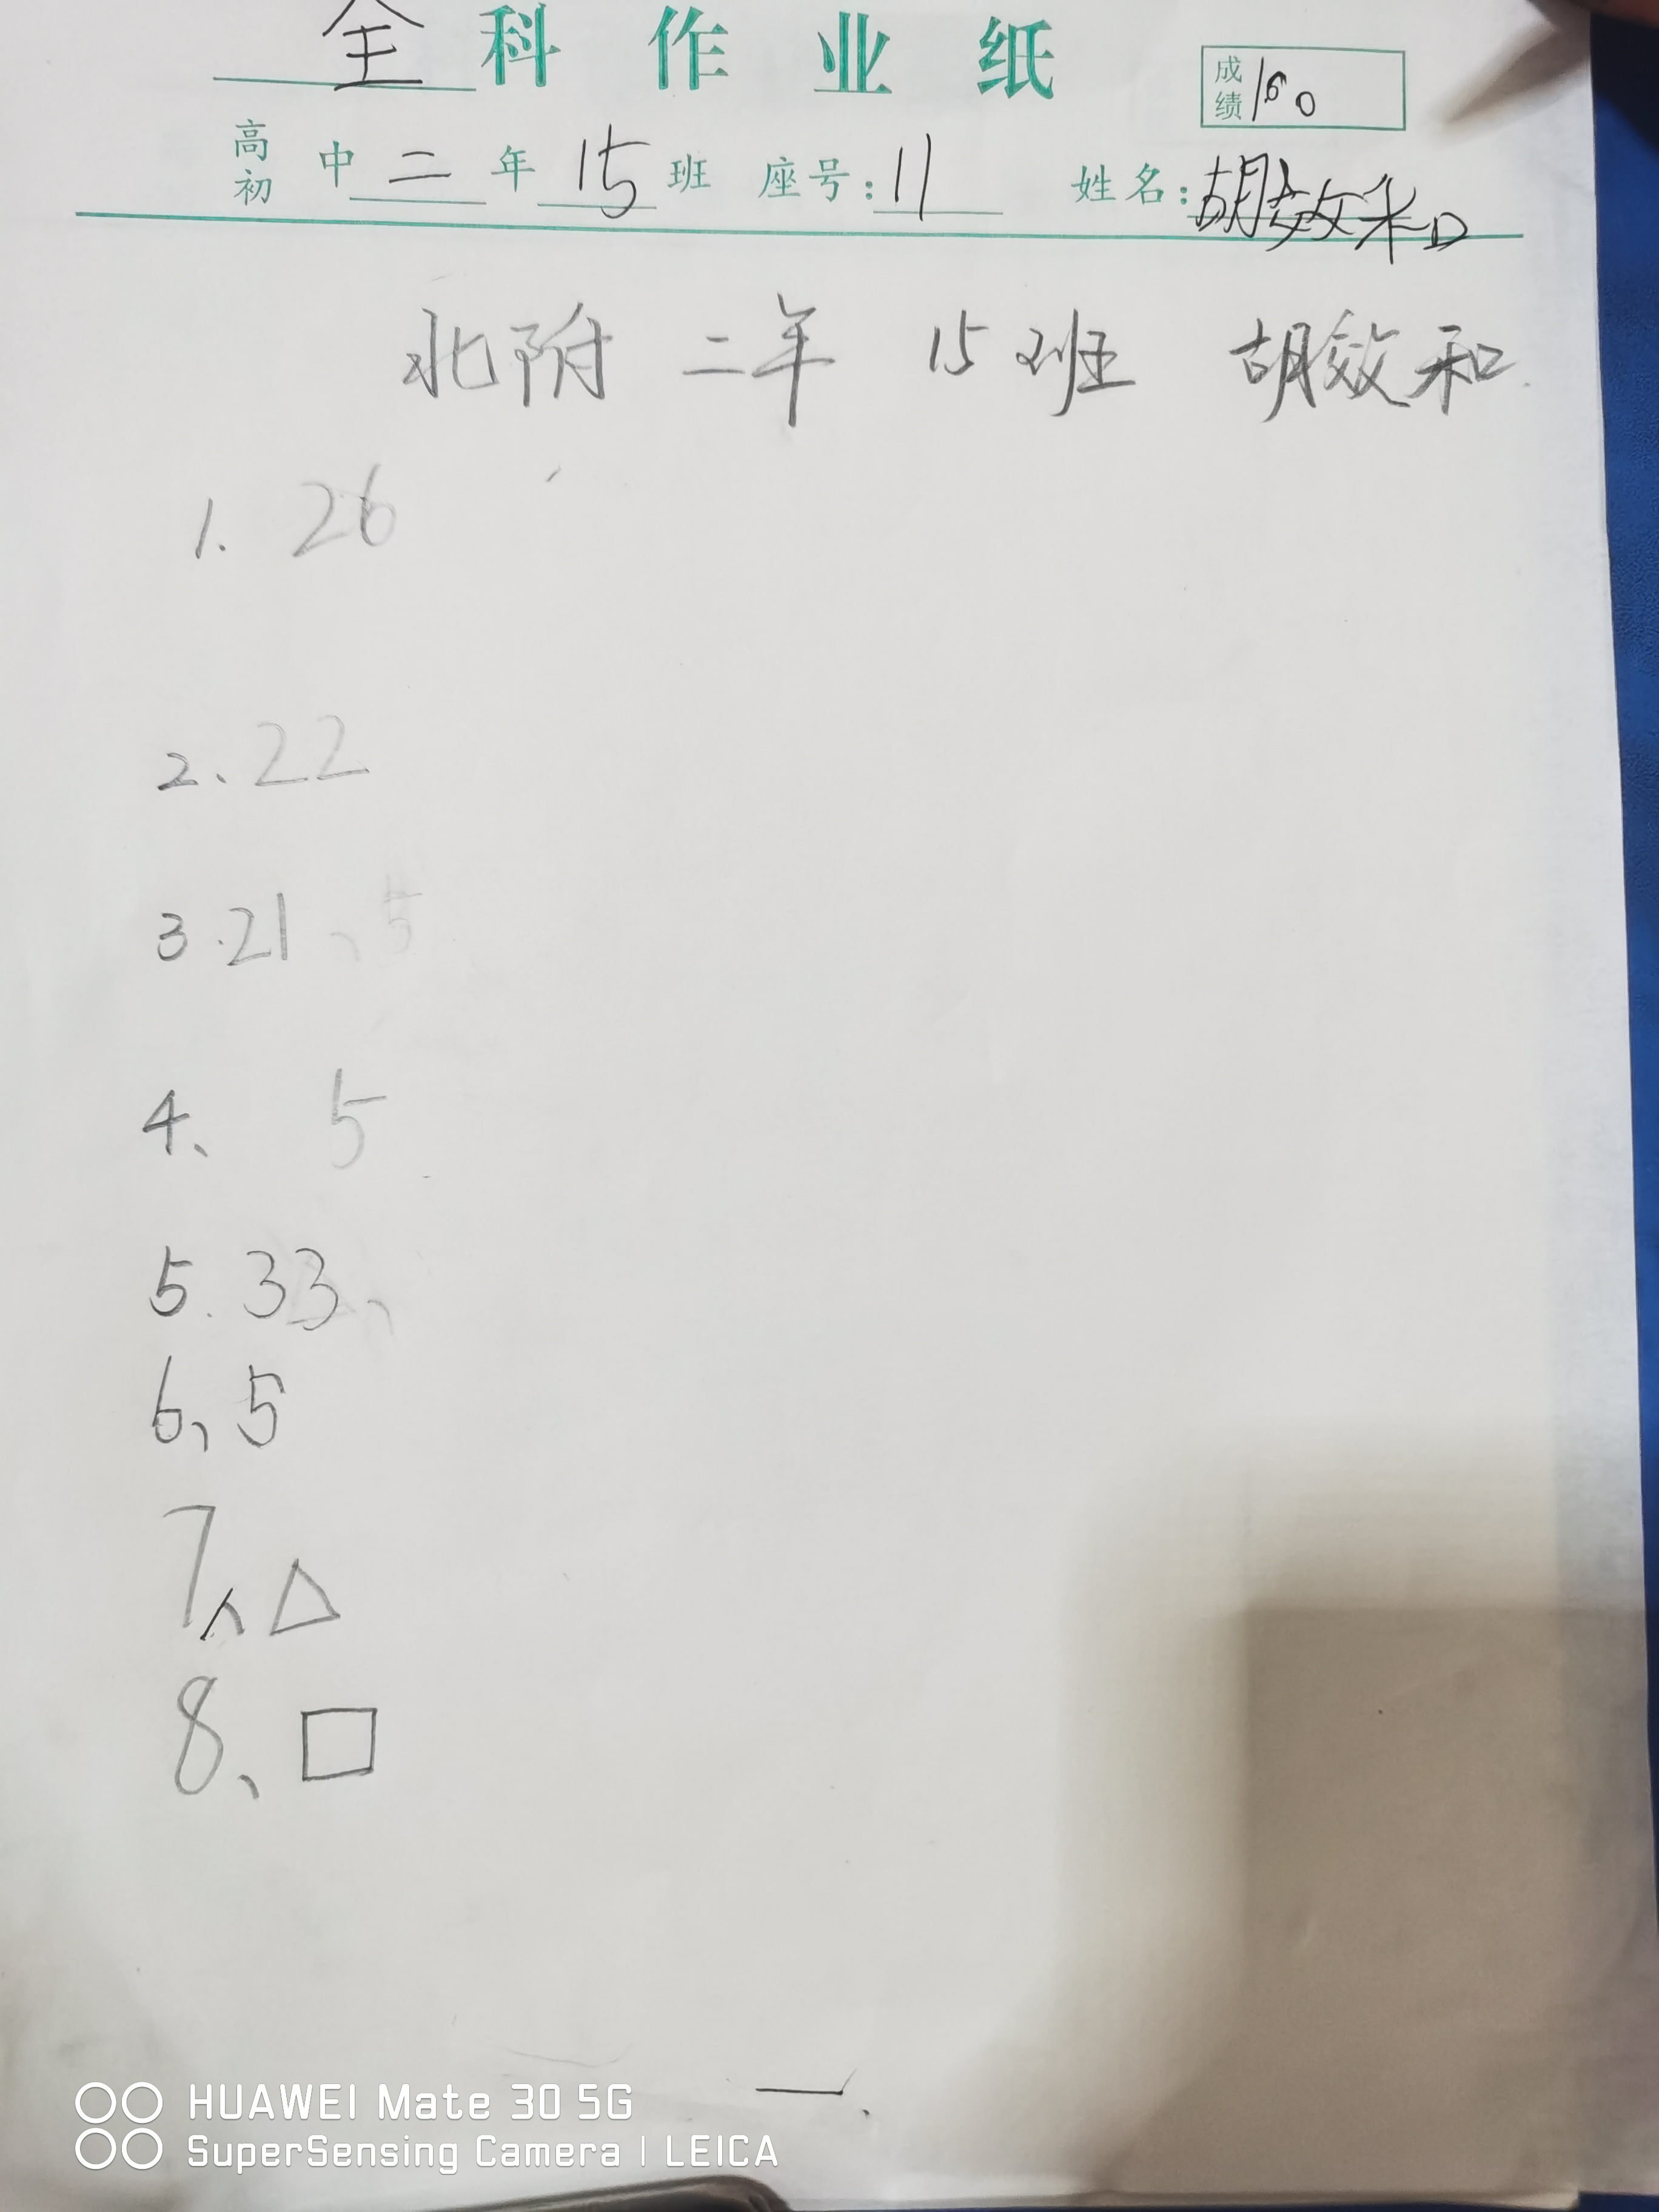 全科作业纸
成绩 160
高初中二年15班 座号:11 姓名:胡效和
北附 二年 15班 胡效和
1. 26
2、22
3.21、5
4、 5
5. 33、
6、5
7、△
8、□
一、
HUAWEI Mate 30 5G
SuperSensing Camera | LEICA